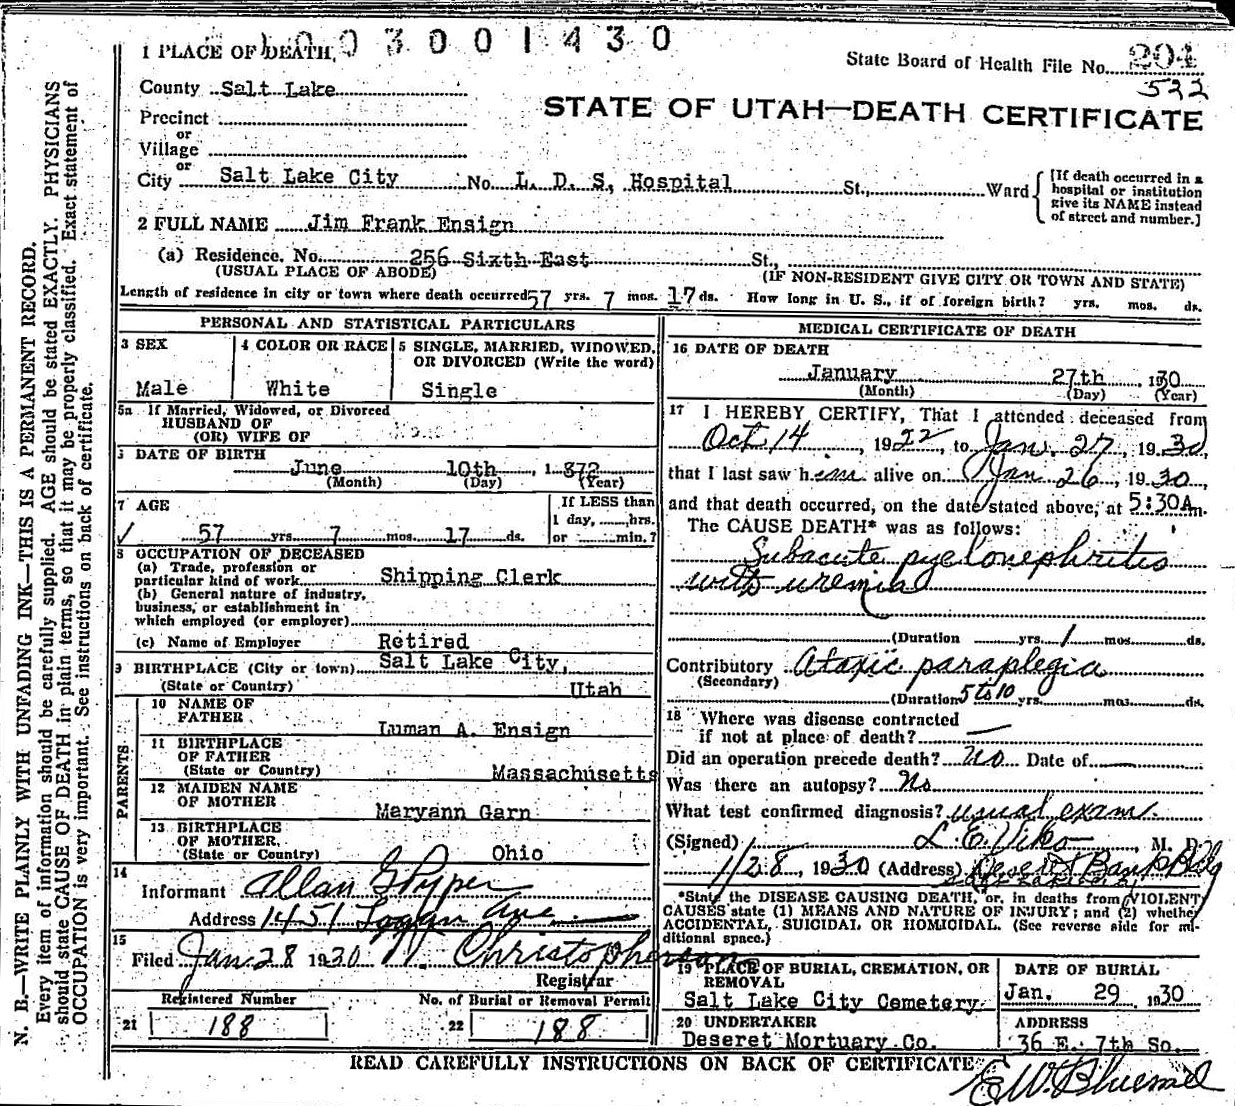 1 PLACE OF DEATH, 003001430
State Board of Health File No. 204
522
County Salt Lake
STATE OF UTAH—DEATH CERTIFICATE
Precinct
or
Village
or
City Salt Lake City No. L. D. S. Hospital St., Ward
[If death occurred in a
hospital or institution
give its NAME instead
of street and number.]
2 FULL NAME Jim Frank Ensign
(a) Residence. No. 256 Sixth East St.,
(USUAL PLACE OF ABODE) (IF NON-RESIDENT GIVE CITY OR TOWN AND STATE)
Length of residence in city or town where death occurred 57 yrs. 7 mos. 17 ds. How long in U. S., if of foreign birth? yrs. mos. ds.
PERSONAL AND STATISTICAL PARTICULARS
3 SEX
Male
4 COLOR OR RACE
White
5 SINGLE, MARRIED, WIDOWED,
OR DIVORCED (Write the word)
Single
5a If Married, Widowed, or Divorced
HUSBAND OF
(OR) WIFE OF
6 DATE OF BIRTH
June 10th, 1872
(Month) (Day) (Year)
7 AGE
57 yrs. 7 mos. 17 ds.
If LESS than
1 day, hrs.
or min.?
8 OCCUPATION OF DECEASED
(a) Trade, profession or
particular kind of work Shipping Clerk
(b) General nature of industry,
business, or establishment in
which employed (or employer)
(c) Name of Employer Retired
9 BIRTHPLACE (City or town) Salt Lake City,
(State or Country) Utah
PARENTS
10 NAME OF
FATHER Luman A. Ensign
11 BIRTHPLACE
OF FATHER
(State or Country) Massachusetts
12 MAIDEN NAME
OF MOTHER Maryann Garn
13 BIRTHPLACE
OF MOTHER
(State or Country) Ohio
14
Informant Allan G Pyper
Address 1451 Logan Ave
15
Filed Jan 28 1930 Christopherson
Registrar
Registered Number
21 188
No. of Burial or Removal Permit
22 188
MEDICAL CERTIFICATE OF DEATH
16 DATE OF DEATH
January 27th, 1930
(Month) (Day) (Year)
17 I HEREBY CERTIFY, That I attended deceased from
Oct 14, 1922, to Jan. 27, 1930,
that I last saw him alive on Jan 26, 1930,
and that death occurred, on the date stated above, at 5:30 A m.
The CAUSE DEATH* was as follows:
Subacute pyelonephritis
with uremia
(Duration yrs. 1 mos. ds.
Contributory Ataxic paraplegia
(Secondary)
(Duration 5 to 10 yrs. mos. ds.
18 Where was disease contracted
if not at place of death? —
Did an operation precede death? no Date of —
Was there an autopsy? No
What test confirmed diagnosis? usual exam.
(Signed) L. E. Viko M. D.
1/28, 1930 (Address) Deseret Bank Bldg
*State the DISEASE CAUSING DEATH, or, in deaths from VIOLENT
CAUSES state (1) MEANS AND NATURE OF INJURY; and (2) whether
ACCIDENTAL, SUICIDAL OR HOMICIDAL. (See reverse side for ad-
ditional space.)
19 PLACE OF BURIAL, CREMATION, OR
REMOVAL
Salt Lake City Cemetery.
DATE OF BURIAL
Jan. 29, 1930
20 UNDERTAKER
Deseret Mortuary Co.
ADDRESS
36 E. 7th So.
READ CAREFULLY INSTRUCTIONS ON BACK OF CERTIFICATE
E W Bluemel
N. B.—WRITE PLAINLY WITH UNFADING INK—THIS IS A PERMANENT RECORD.
Every item of information should be carefully supplied. AGE should be stated EXACTLY. PHYSICIANS
should state CAUSE OF DEATH in plain terms, so that it may be properly classified. Exact statement of
OCCUPATION is very important. See instructions on back of certificate.